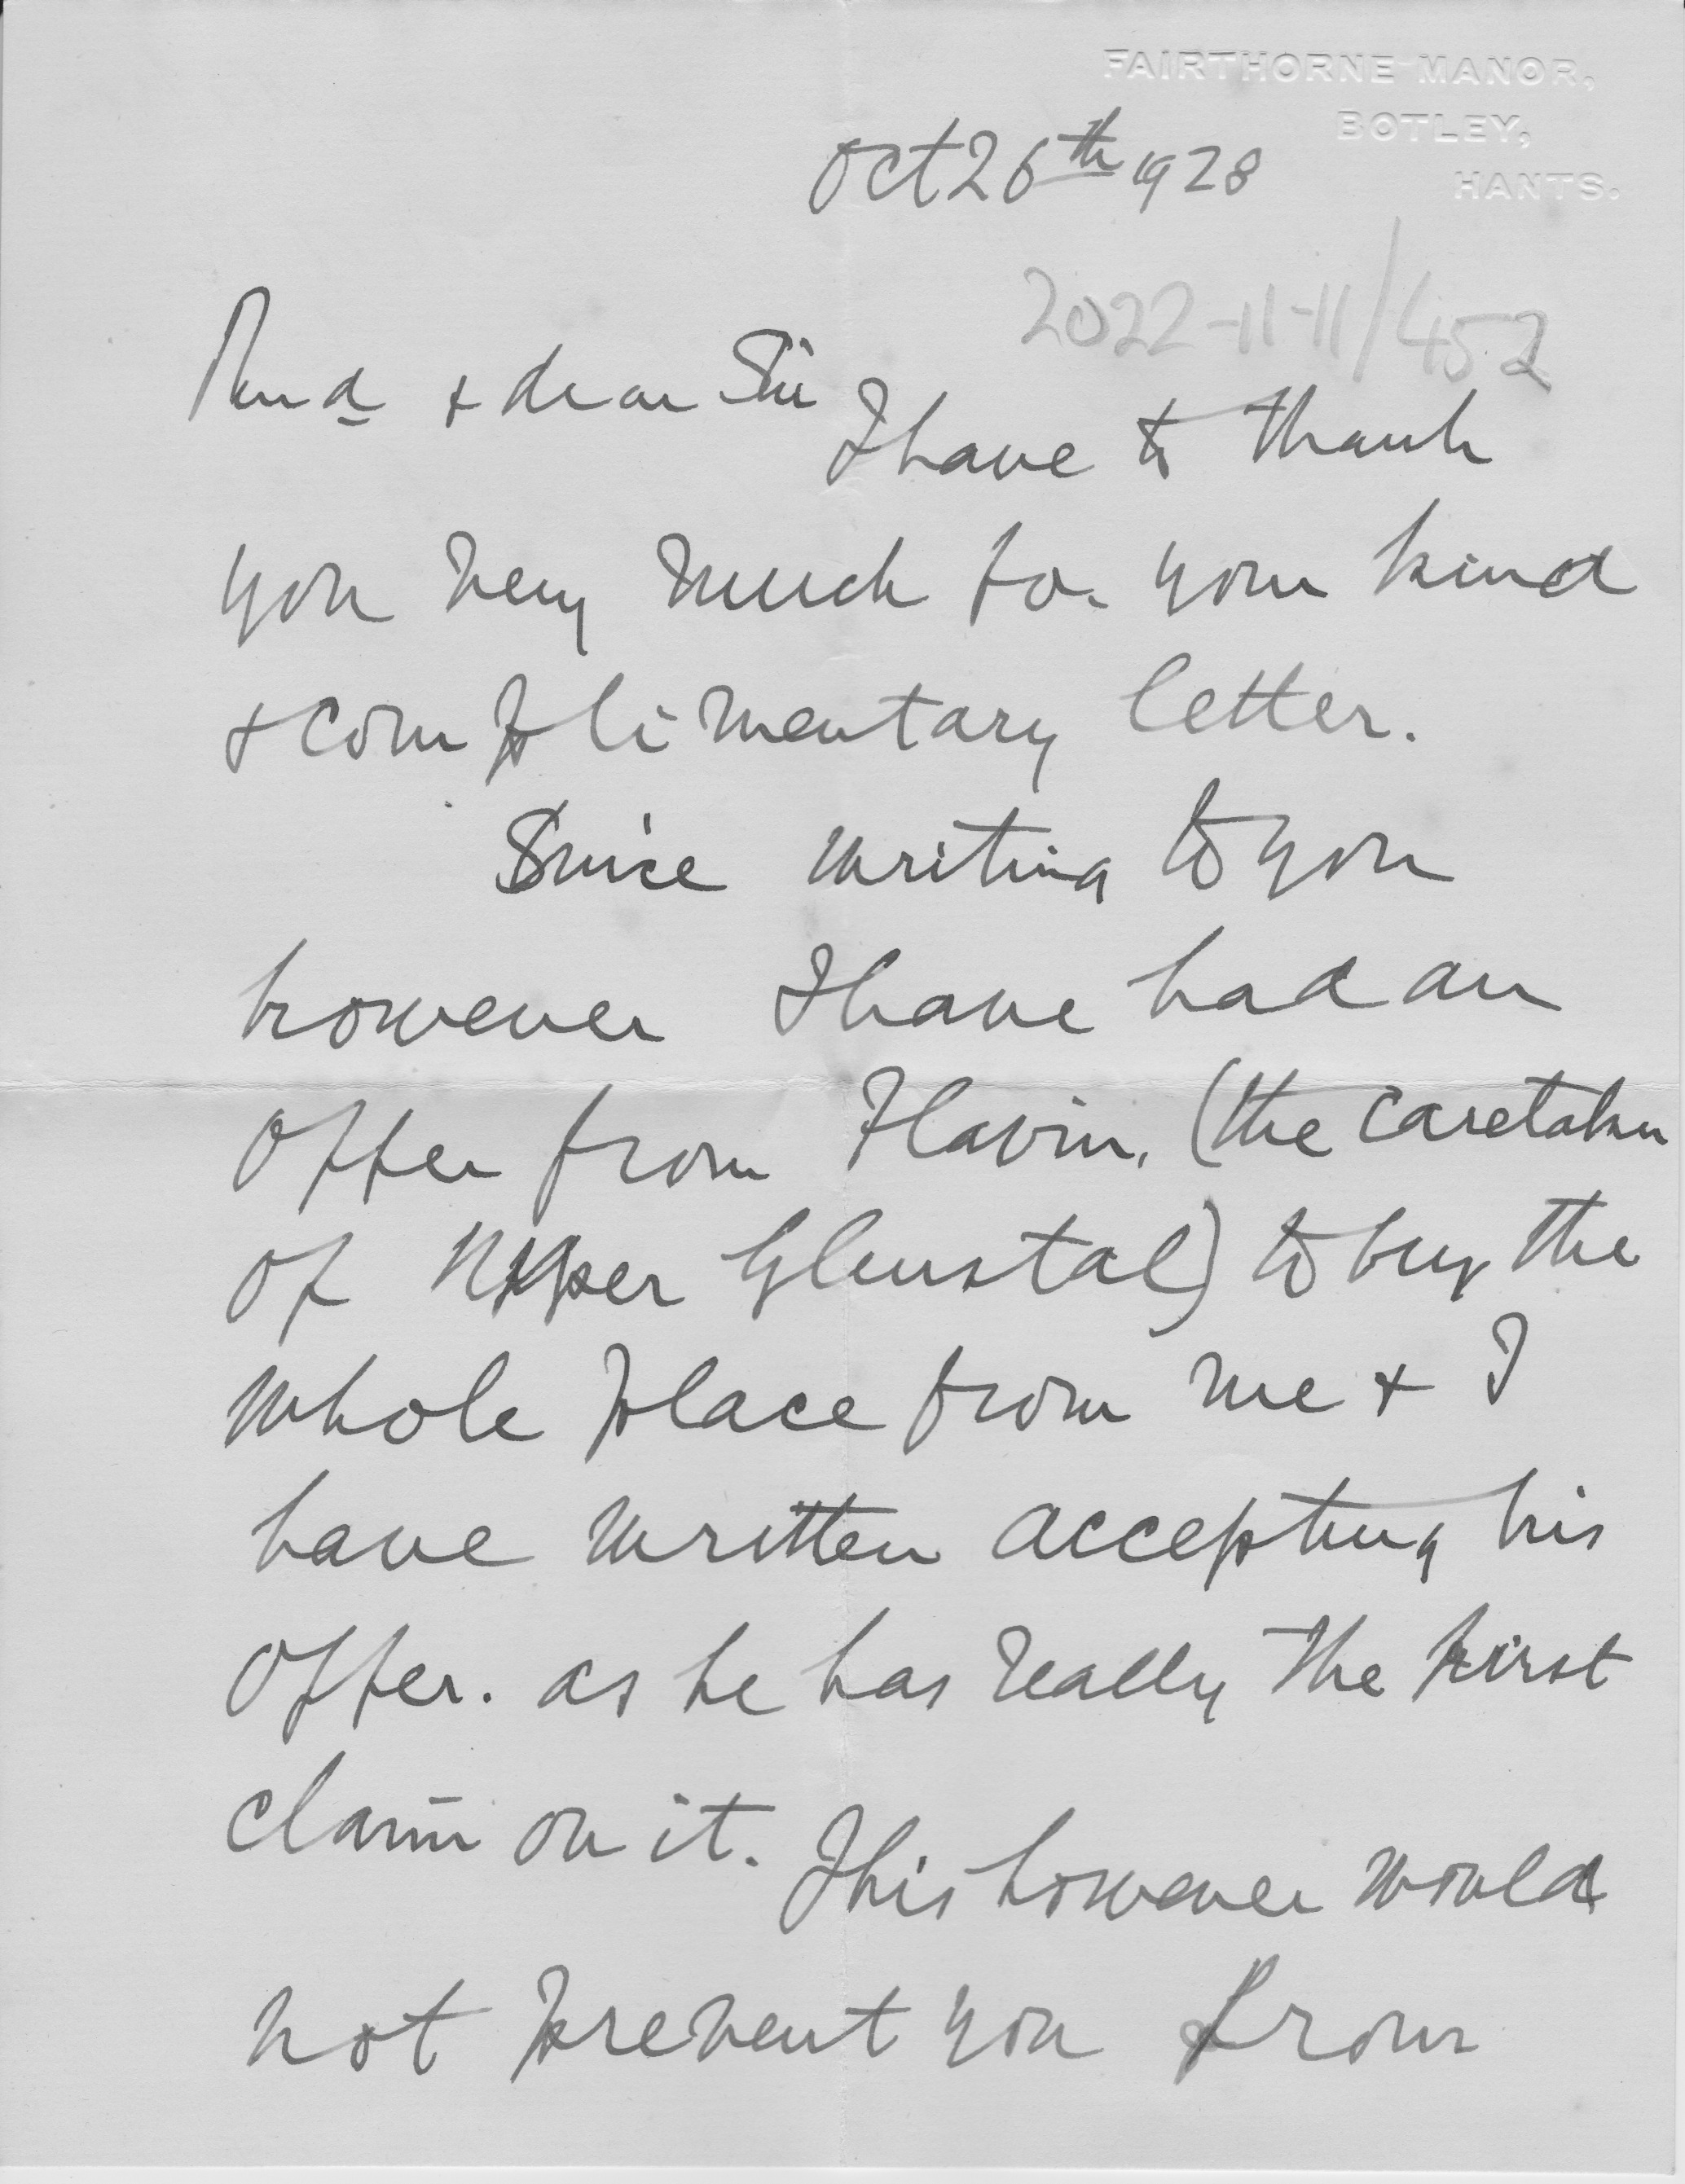 FAIRTHORNE MANOR,
BOTLEY,
HANTS.
Oct 26th 1928
2022-11-11/452
Revd & dear Sir
I have to thank
you very much for your kind
& complimentary letter.
Since writing to you
however I have had an
offer from Flavin, (the caretaker
of Upper Glenstal) to buy the
whole place from me & I
have written accepting his
offer. as he has really the first
claim on it. This however would
not prevent you from